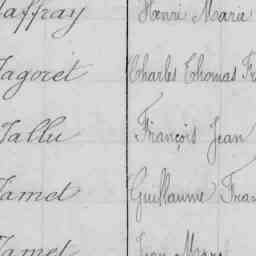 Jaffray Henri Marie
Jagoret Charles Thomas Fr
Jallu François Jean
Jamet Guillaume Fran
Jamet Jean Marie